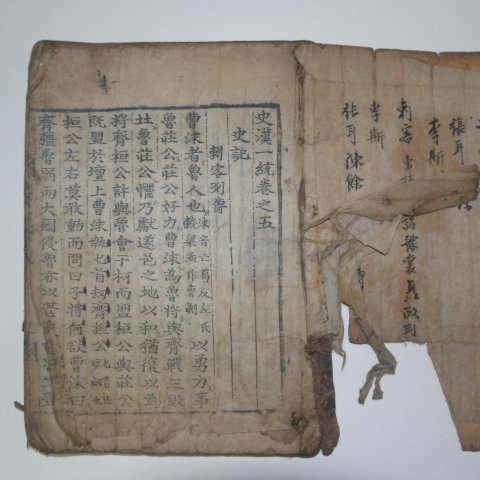 張耳
李斯
刺客
李斯
張耳 陳餘
史漢一統卷之五
史記
刺客列傳
曹沫者魯人也 以勇力事
魯莊公莊公好力曹沫爲魯將與齊戰三敗
北魯莊公懼乃獻遂邑之地以和猶復以爲
將齊桓公許與魯會于柯而盟桓公與莊公
既盟於壇上曹沫執匕首劫齊桓公
桓公左右莫敢動而問曰子將何欲曹沫曰
齊彊魯弱而大國侵魯亦以甚